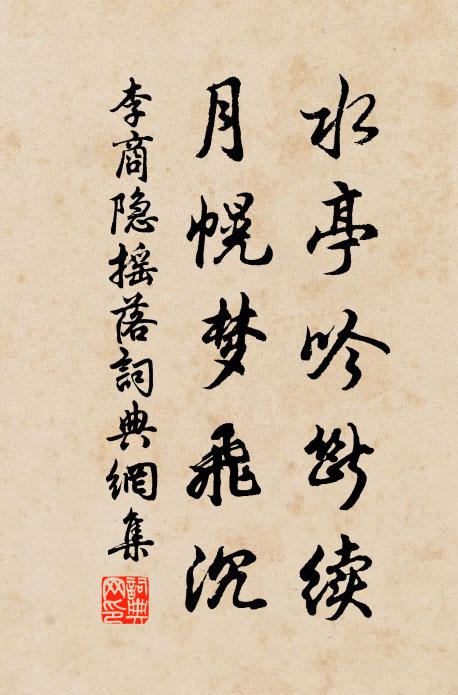 水亭吟断续
月幌梦飛沉
李商隐摇落詞典網集
詞典网印